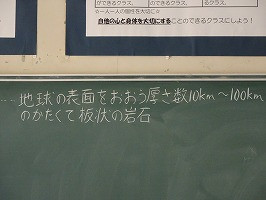 ができるクラス。
のできるクラス。
るクラス。
☆一人一人の個性を大切に☆
自他の心と身体を大切にすることのできるクラスにしよう！
… 地球の表面をおおう厚さ数10km〜100km
のかたくて板状の岩石